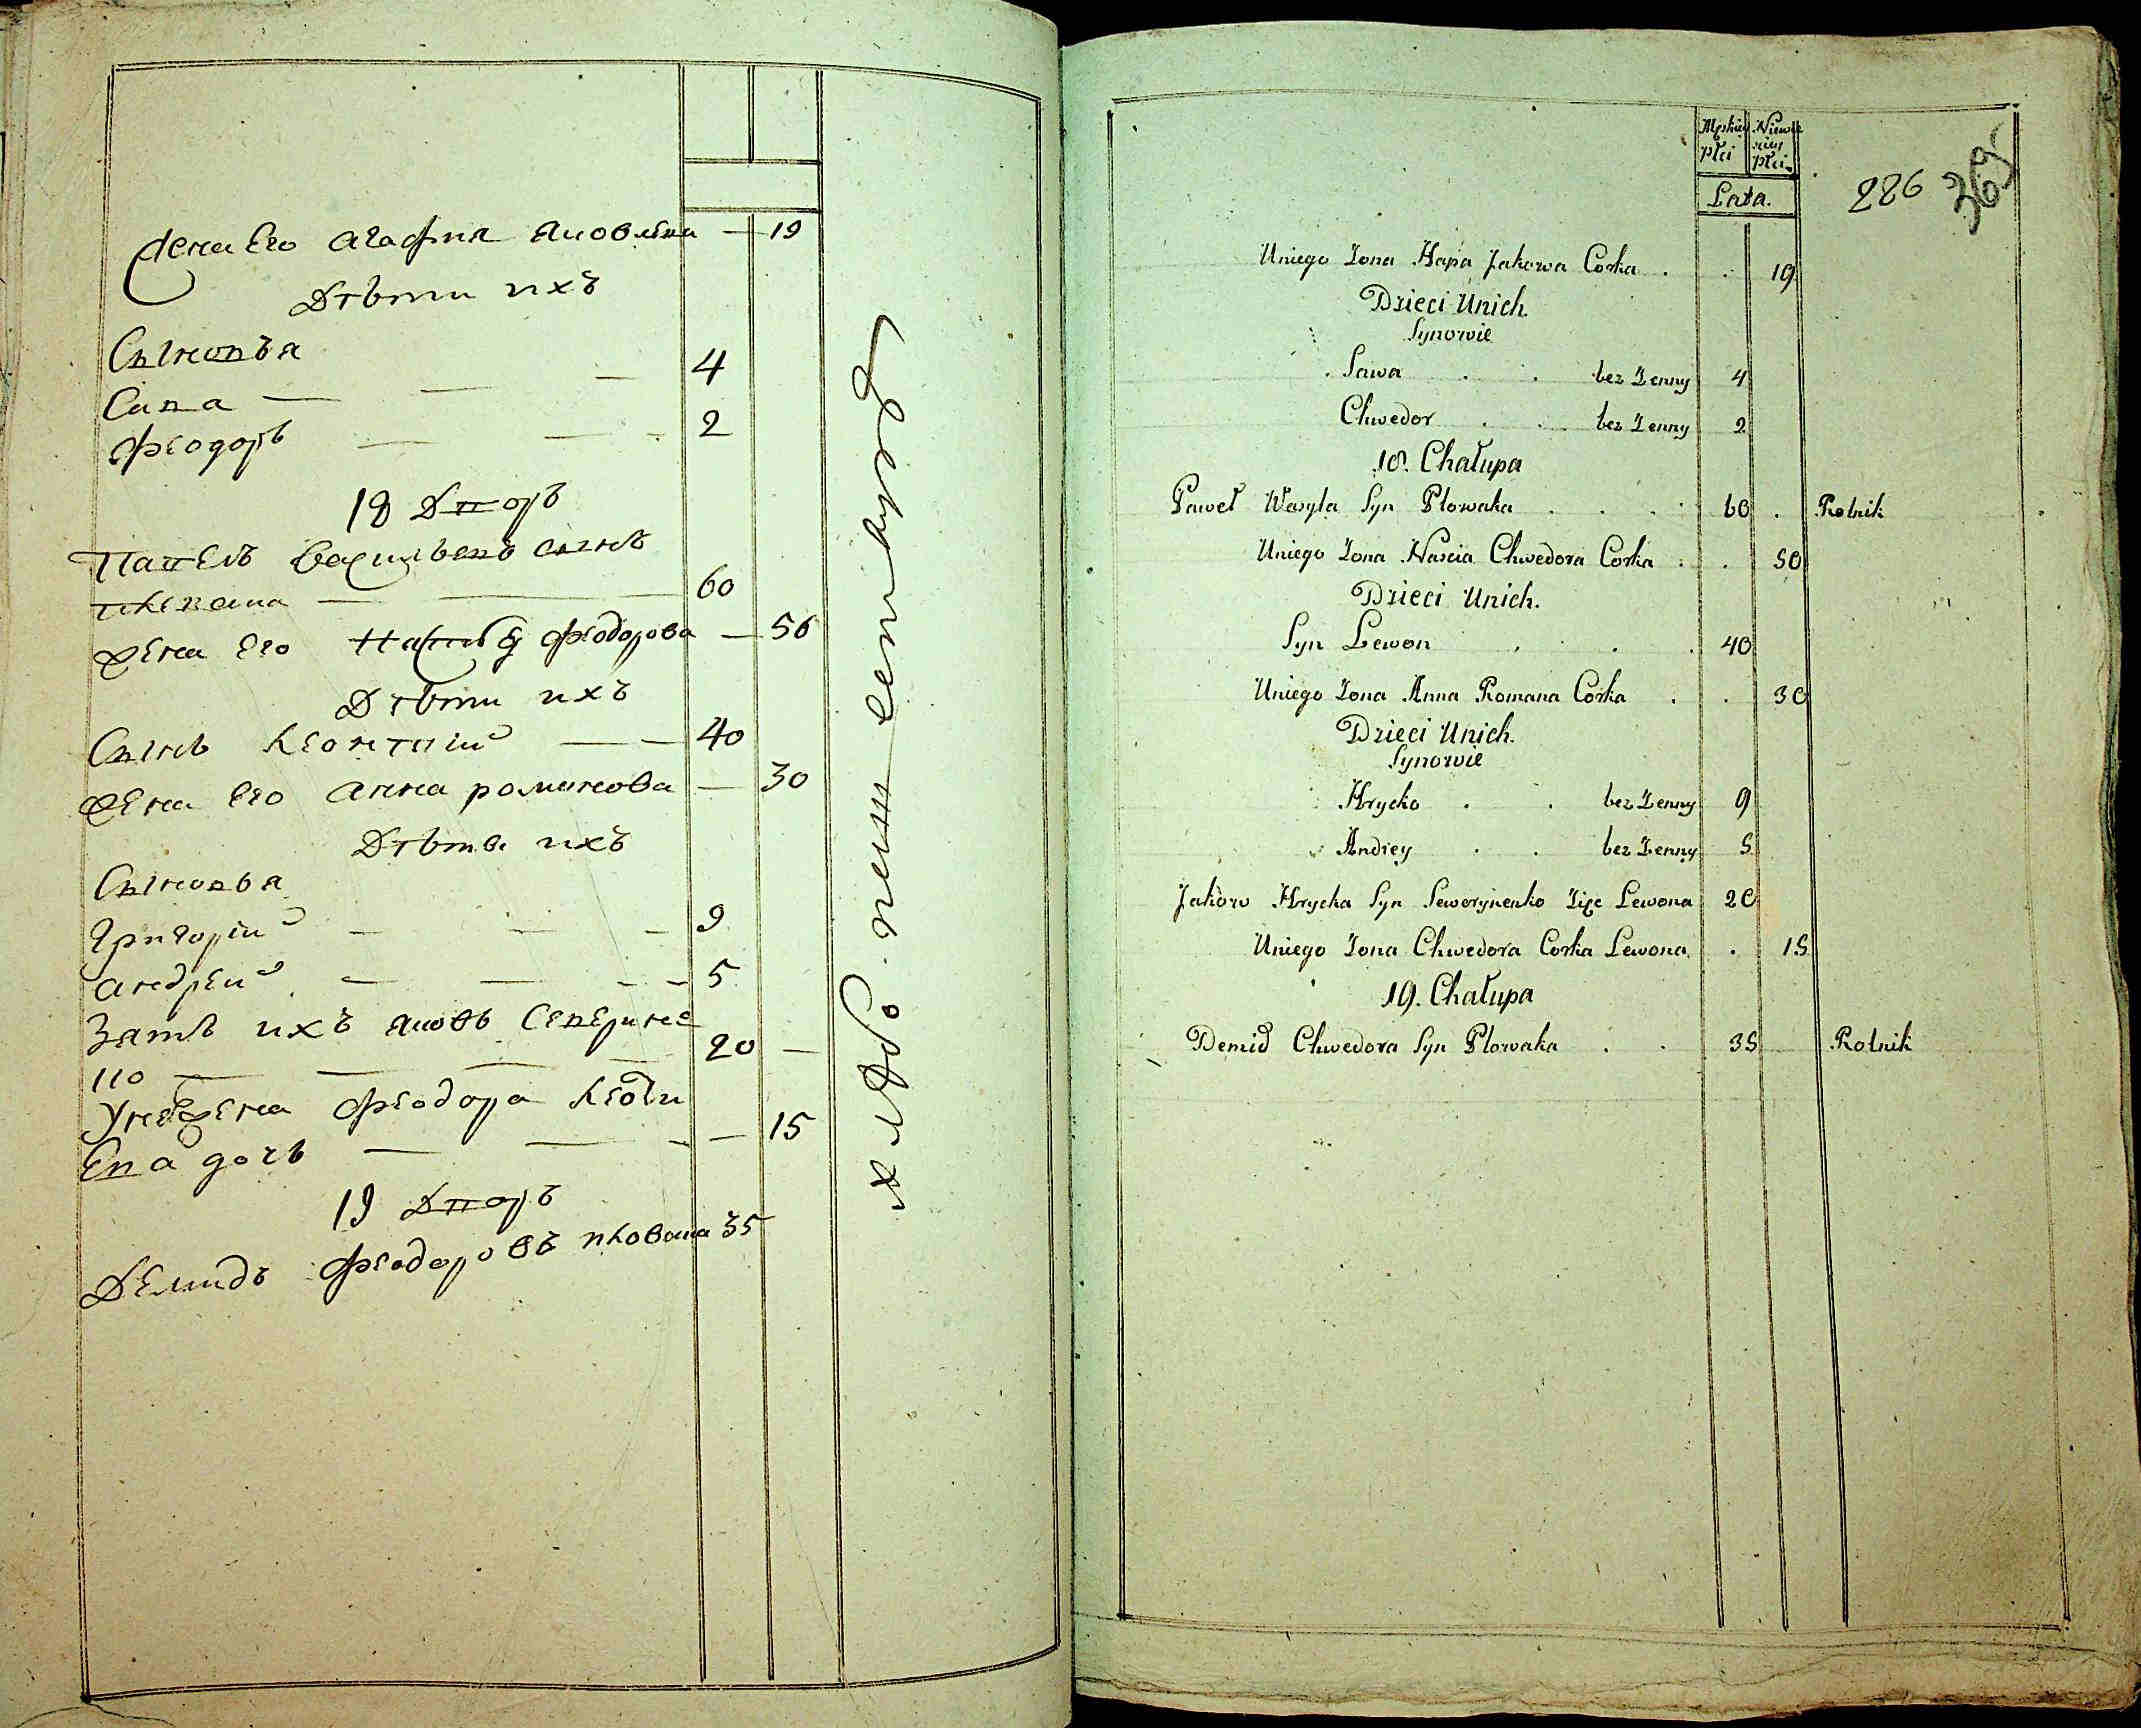 жена Его агафия яковлева — 19
Дѣти ихъ
Сыновья
Сава — — — 4
Феодоръ — — - 2
18 Дворъ
Павелъ васильевъ сынъ
пловака — — 60
жена Его Настѣя Феодорова — 56
Дѣти ихъ
Сынъ леонтий — — 40
жена Его анна романова — 30
Дѣти ихъ
Сыновья
григорий — — — 9
андрей — — - - 5
Зять ихъ яковъ Северинен
ко — — — — 20 —
У него жена Феодора
Ева дочь — — - — 15
19 Дворъ
Демидъ Феодоровъ пловака 35
хлѣбо пашенствуютъ
Męskiey płci
Niewieściey płci
Lata.
226
369
Uniego Zona Hapa Jakowa Corka . . 19
Dzieci Unich.
Synowie
Sawa . . bez Zenny 4
Chwedor . . bez Zenny 2
18. Chałupa
Paweł Wasyla Syn Płowaka . . . 60 . Rolnik
Uniego Zona Naścia Chwedora Corka . . 50
Dzieci Unich.
Syn Lewon . . . 40
Uniego Zona Anna Romana Corka . . 30
Dzieci Unich.
Synowie
Hrycko . . bez Zenny 9
Andrey . . bez Zenny 5
Jakow Hrycka Syn Sewerynenko Zięc Lewona 20
Uniego Zona Chwedora Corka Lewona . 15
19. Chałupa
Demid Chwedora Syn Płowaka . . 35 Rolnik